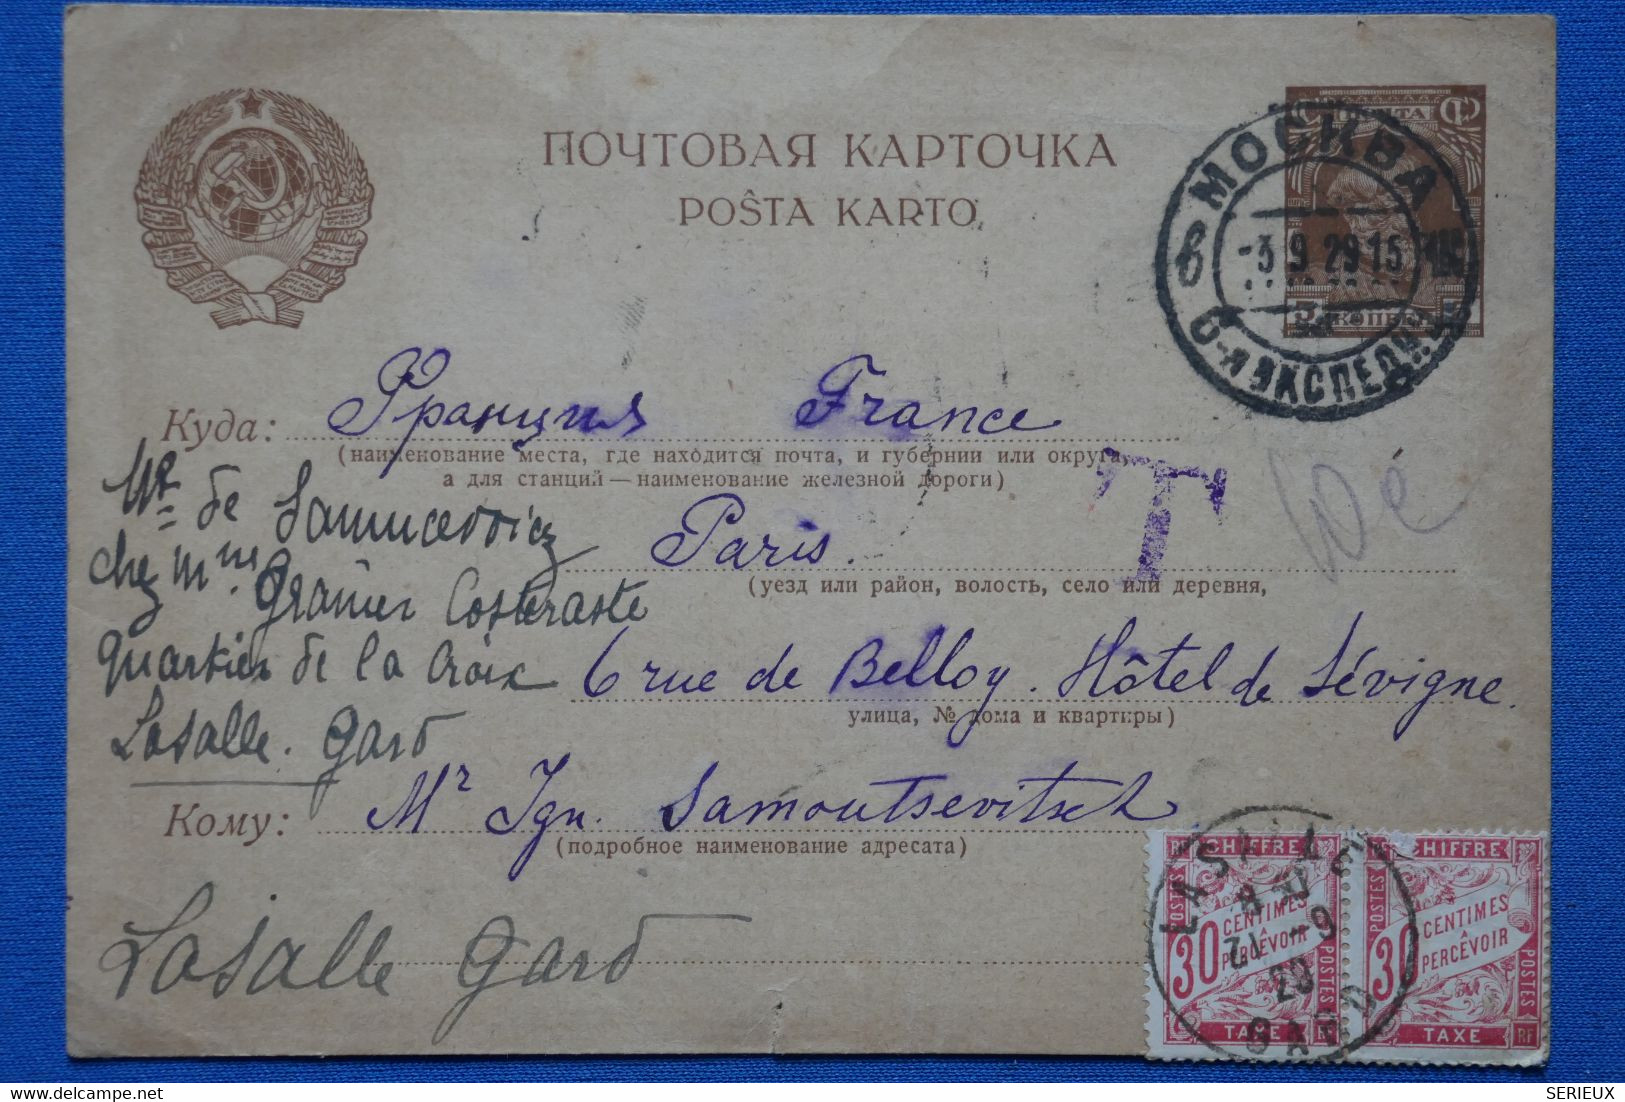 ПОЧТОВАЯ КАРТОЧКА
POŜTA KARTO
ПОЧТА
МОСКВА
-3 9 29 15
6-я ЭКСПЕДИЦ.
КОПЕЕК
Куда: Франция France
(наименование места, где находится почта, и губернии или округа,
а для станций — наименование железной дороги)
T
Mr de Samucevvicz
chez Mme Granier Costeraste
quartier de la Croix
Lasalle. Gard
Paris.
(уезд или район, волость, село или деревня,
6 rue de Belloy. Hôtel de Sévigne.
улица, № дома и квартиры)
Кому: Mr Ign. Samoutsevitsch
(подробное наименование адресата)
Lasalle Gard
CHIFFRE
POSTES
30 CENTIMES
À
PERCEVOIR
POSTES
TAXE
RF
CHIFFRE
POSTES
30 CENTIMES
À
PERCEVOIR
POSTES
TAXE
RF
LASALLE
-9
29
GARD
SERIEUX
www.delcampe.net